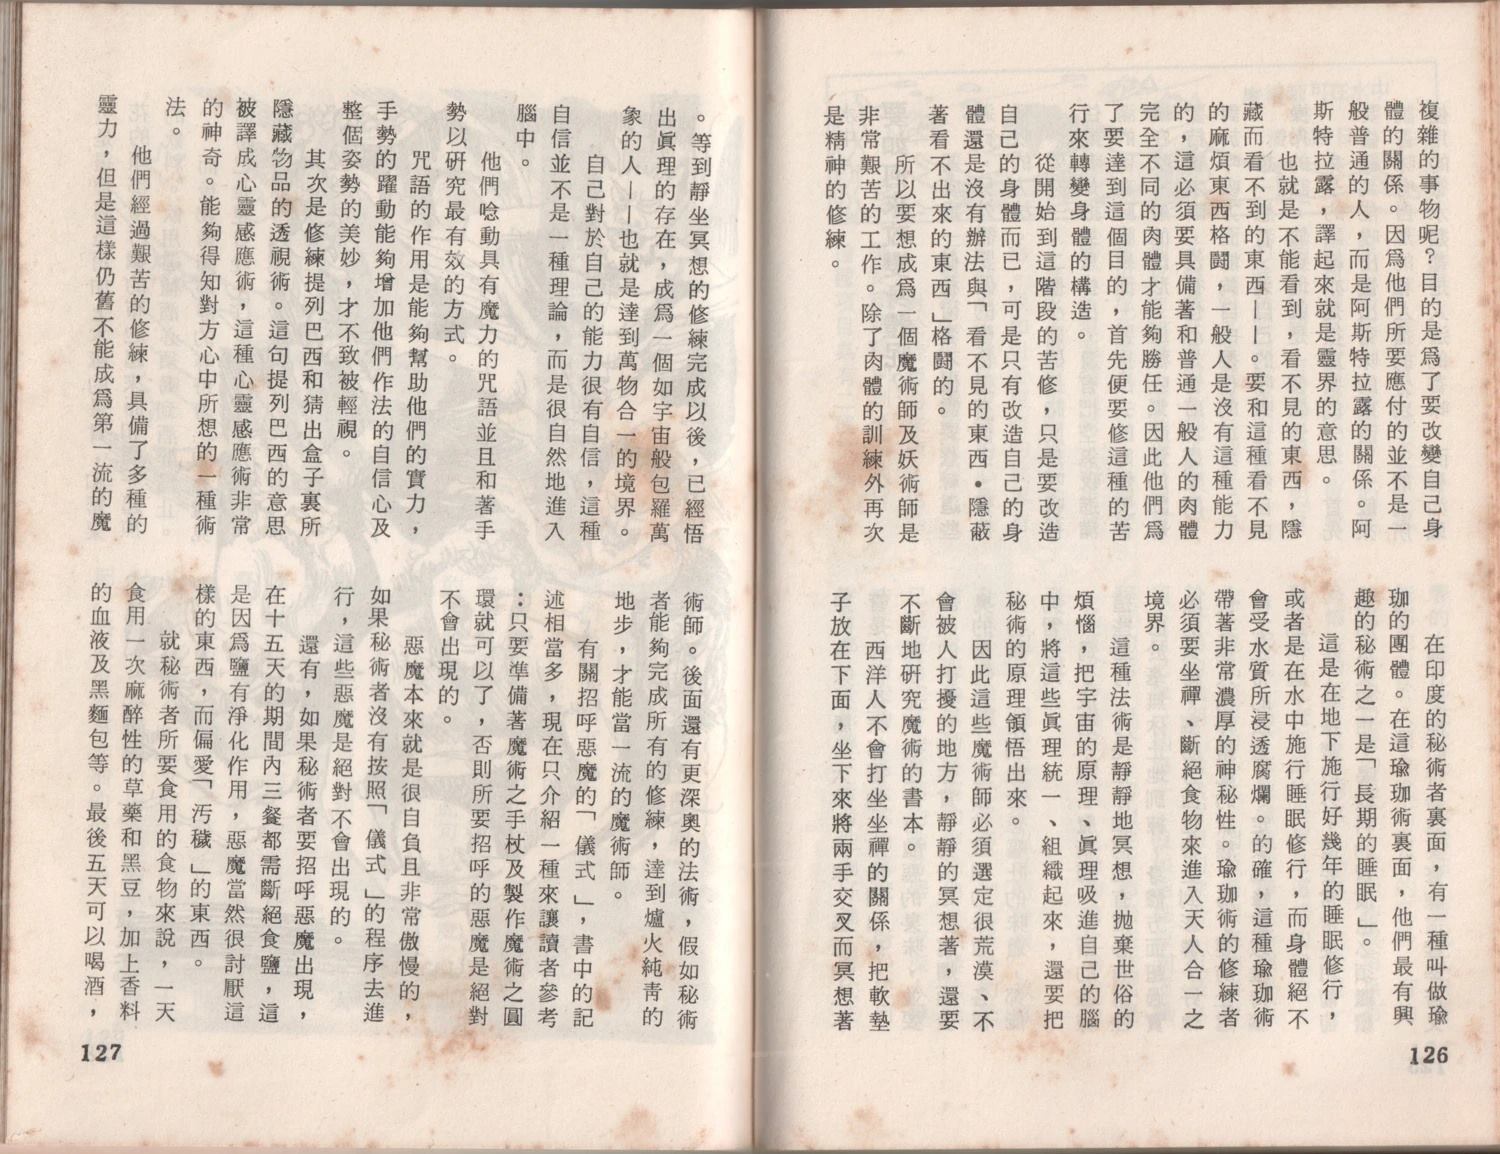 複雜的事物呢？目的是爲了要改變自己身
體的關係。因爲他們所要應付的並不是一
般普通的人，而是阿斯特拉露的關係。阿
斯特拉露，譯起來就是靈界的意思。
也就是不能看到，看不見的東西，隱
藏而看不到的東西——。要和這種看不見
的麻煩東西格鬪，一般人是沒有這種能力
的，這必須要具備著和普通一般人的肉體
完全不同的肉體才能夠勝任。因此他們爲
了要達到這個目的，首先便要修這種的苦
行來轉變身體的構造。
從開始到這階段的苦修，只是要改造
自己的身體而已，可是只有改造自己的身
體還是沒有辦法與「看不見的東西•隱蔽
著看不出來的東西」格鬪的。
所以要想成爲一個魔術師及妖術師是
非常艱苦的工作。除了肉體的訓練外再次
是精神的修練。
在印度的秘術者裏面，有一種叫做瑜
珈的團體。在這瑜珈術裏面，他們最有興
趣的秘術之一是「長期的睡眠」。
這是在地下施行好幾年的睡眠修行，
或者是在水中施行睡眠修行，而身體絕不
會受水質所浸透腐爛。的確，這種瑜珈術
帶著非常濃厚的神秘性。瑜珈術的修練者
必須要坐禪、斷絕食物來進入天人合一之
境界。
這種法術是靜靜地冥想，拋棄世俗的
煩惱，把宇宙的原理、眞理吸進自己的腦
中，將這些眞理統一、組織起來，還要把
秘術的原理領悟出來。
因此這些魔術師必須選定很荒漠、不
會被人打擾的地方，靜靜的冥想著，還要
不斷地研究魔術的書本。
西洋人不會打坐坐禪的關係，把軟墊
子放在下面，坐下來將兩手交叉而冥想著
126
。等到靜坐冥想的修練完成以後，已經悟
出眞理的存在，成爲一個如宇宙般包羅萬
象的人——也就是達到萬物合一的境界。
自己對於自己的能力很有自信，這種
自信並不是一種理論，而是很自然地進入
腦中。
他們唸動具有魔力的咒語並且和著手
勢以研究最有效的方式。
咒語的作用是能夠幫助他們的實力，
手勢的躍動能夠增加他們作法的自信心及
整個姿勢的美妙，才不致被輕視。
其次是修練提列巴西和猜出盒子裏所
隱藏物品的透視術。這句提列巴西的意思
被譯成心靈感應術，這種心靈感應術非常
的神奇。能夠得知對方心中所想的一種術
法。
他們經過艱苦的修練，具備了多種的
靈力，但是這樣仍舊不能成爲第一流的魔
術師。後面還有更深奧的法術，假如秘術
者能夠完成所有的修練，達到爐火純靑的
地步，才能當一流的魔術師。
有關招呼惡魔的「儀式」，書中的記
述相當多，現在只介紹一種來讓讀者參考
：只要準備著魔術之手杖及製作魔術之圓
環就可以了，否則所要招呼的惡魔是絕對
不會出現的。
惡魔本來就是很自負且非常傲慢的，
如果秘術者沒有按照「儀式」的程序去進
行，這些惡魔是絕對不會出現的。
還有，如果秘術者要招呼惡魔出現，
在十五天的期間內三餐都需斷絕食鹽，這
是因爲鹽有淨化作用，惡魔當然很討厭這
樣的東西，而偏愛「汚穢」的東西。
就秘術者所要食用的食物來說，一天
食用一次麻醉性的草藥和黑豆，加上香料
的血液及黑麵包等。最後五天可以喝酒，
127